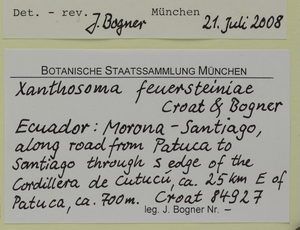 Det. - rev. J. Bogner München 21. Juli 2008
BOTANISCHE STAATSSAMMLUNG MÜNCHEN
Xanthosoma feuersteiniae
Croat & Bogner
Ecuador: Morona-Santiago,
along road from Patuca to
Santiago through S edge of the
Cordillera de Cutucú, ca. 25 km E of
Patuca, ca. 700m. Croat 84927
leg. J. Bogner Nr. -